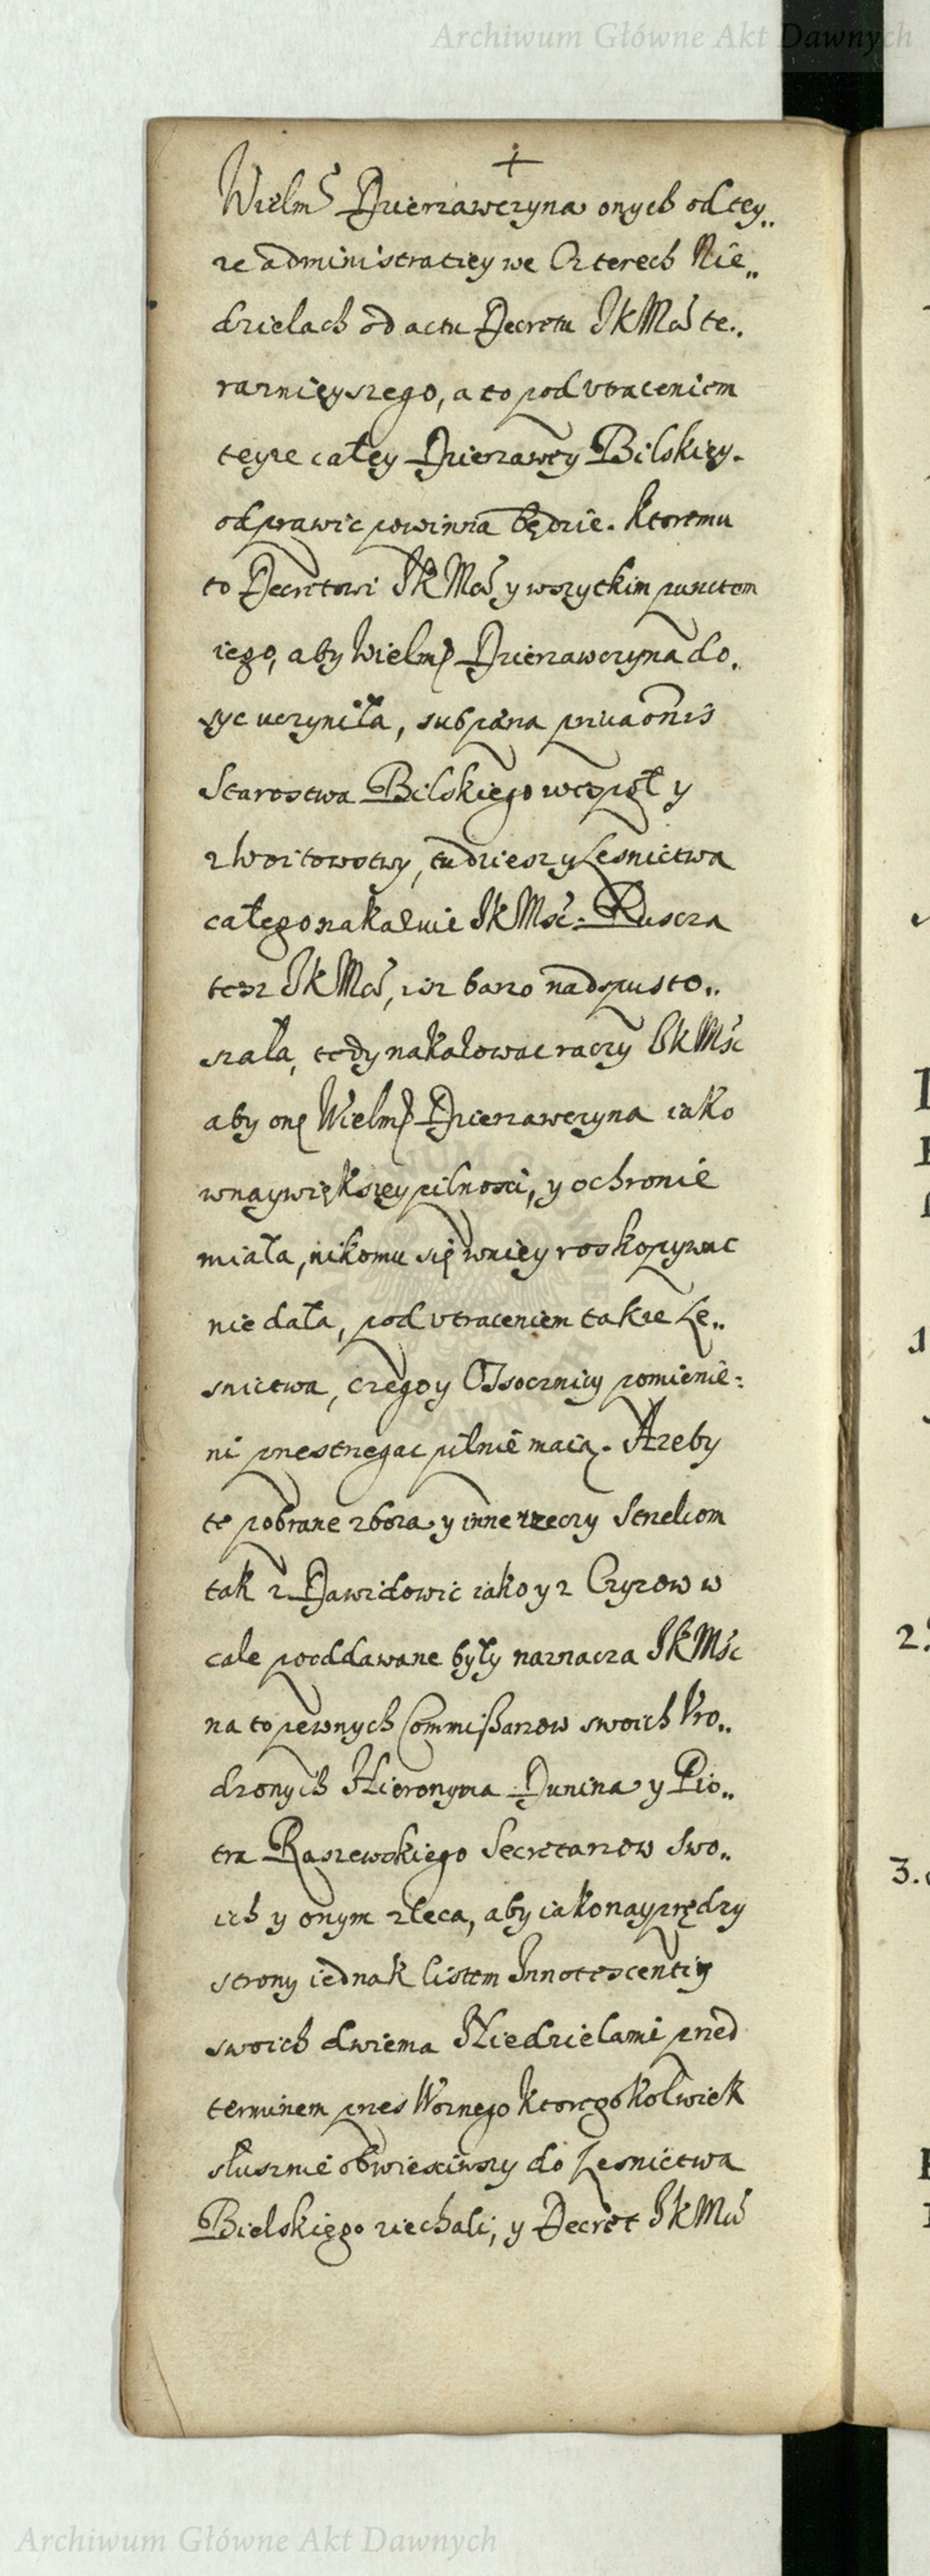 Archiwum Główne Akt Dawnych
+
Wielmſ Dzierzawczyna onych od tey„
ze administratiey we Czterech Nie„
dzielach od actu Decretu JKMcſ te„
raznieyszego, a to pod vtraceniem
teyze całey Dzierzawey Bilskiey.
odprawic powinna będzie. Ktoremu
to Decretowi JKMcſ y wszytkim punctom
iego, aby Wielmſ Dzierzawczyna do„
syc uczyniła, sub pæna priuaonis
Starostwa Bilskiego wespoł y
z Woitowstwy, tudziesz y Lesnictwa
całego nakaznie JKMsć. Puscza
tesz JKMcſ, isz barzo nadspusto„
szala, tedy nakazowac raczy JKMśc
aby onę Wielmſ Dzierzawczyna iako
w naywiększey pilnosci, y ochronie
miała, nikomu się w niey roskopywac
nie dała, pod vtraceniem takze Le„
snictwa, czego y Ossocznicy pomienie:
ni przestrzegac pilnie maią. A zeby
te pobrane zboza y inne rzeczy Strzelcom
tak z Dawidowic iako y z Czyzow w
cale pooddawane były naznacza JKMśc
na to pewnych Commissarzow swoich Vro„
dzonych Hieronyma Dunina y Pio„
tra Raszewskiego Secretarzow swo„
ich y onym zleca, aby iako nayprędzy
strony iednak listem Innotescentiy
swoich dwiema Niedzielami przed
terminem przes Woznego ktoregokolwiek
słusznie obwiesciwszy do Lesnictwa
Bielskiego ziechali, y Decret JKMcſ
2.
3.
Archiwum Główne Akt Dawnych